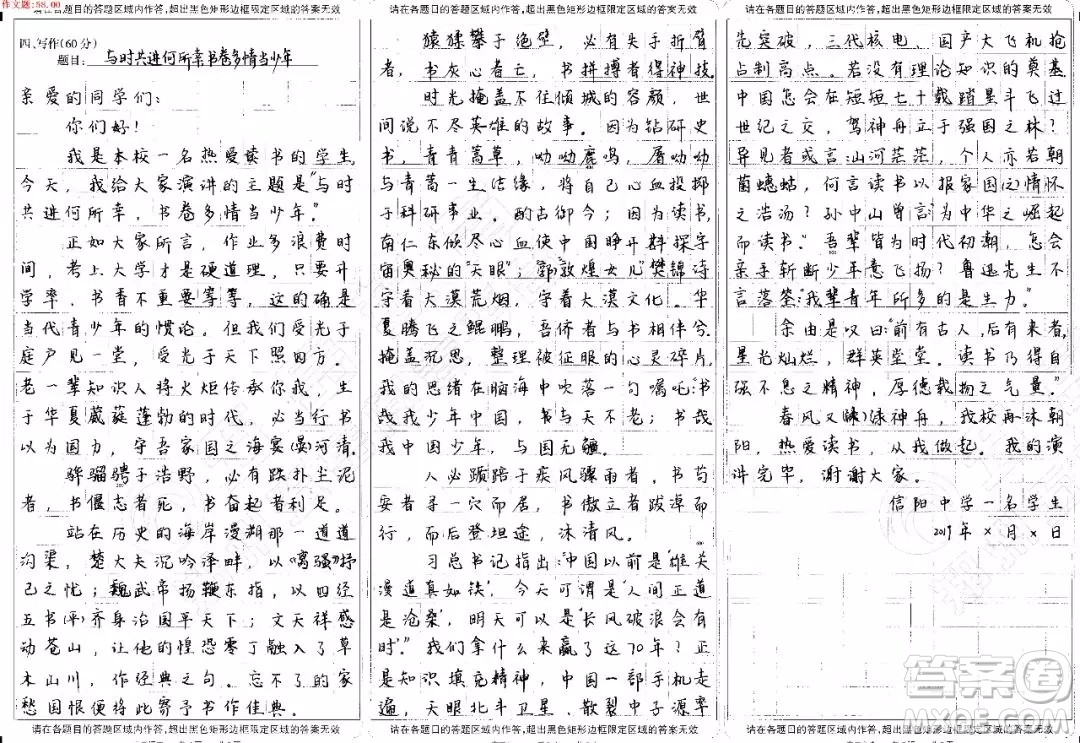 作文题:58.00
请在各题目的答题区域内作答,超出黑色矩形边框限定区域的答案无效
四、写作(60分)
题目: 与时共进何所幸书卷多情当少年
亲爱的同学们:
你们好!
我是本校一名热爱读书的学生,
今天,我给大家演讲的主题是"与时
共进何所幸,书卷多情当少年。"
正如大家所言,作业多浪费时
间,考上大学才是硬道理,只要升
学率,书香不重要等等,这的确是
当代青少年的惯论。但我们受光于
庭户见一堂,受光于天下照四方。
老一辈知识人将火炬传承你我,生
于华夏葳蕤蓬勃的时代,必当行书
以为国力,守吾家国之海宴(晏)河清。
骅骝骋于浩野,必有跌扑尘泥
者,书偃志者死,书奋起者利足。
站在历史的海岸漫溯那一道道
沟渠,楚大夫沉吟泽畔,以《离骚》抒
己之忧;魏武帝扬鞭东指,以四经
五书(平)齐身治国平天下;文天祥感
动苍山,让他的惶恐零丁融入了草
木山川,作经典之句。忘不了的家
愁国恨便将此寄予书作佳典。
请在各题目的答题区域内作答,超出黑色矩形边框限定区域的答案无效
请在各题目的答题区域内作答,超出黑色矩形边框限定区域的答案无效
猿猱攀于绝壁,必有失手折臂
者,书灰心者亡,书拼搏者得神技
时光掩盖不住倾城的容颜,世
间说不尽英雄的故事。因为钻研史
书,青青蒿草,呦呦鹿鸣,屠呦呦
与青蒿一生结缘,将自己心血投掷
于科研事业。酌古御今;因为读书,
南仁东倾尽心血使中国睁开斟探宇
宙奥秘的"天眼";"敦煌女儿"樊锦诗
守着大漠荒烟,守着大漠文化。华
夏腾飞之鲲鹏,吾侪者与书相伴兮,
掩盖沉思,整理被征眼的心灵碎片,
我的思绪在脑海中吹落一句嘱吒:书
哉我少年中国,书与天不老;书哉
我中国少年,与国无疆。
人必踬踣于疾风骤雨者,书苟
安者寻一穴而居,书傲立者跋淖而
行,而后登坦途,沐清风。
习总书记指出:'中国以前是'雄关
漫道真如铁',今天可谓是'人间正道
是沧桑',明天可以是'长风破浪会有
时'。"我们拿什么来赢了这70年?正
是知识填充精神,中国一部手机走
遍,天眼北斗卫星、散裂中子源率
请在各题目的答题区域内作答,超出黑色矩形边框限定区域的答案无效
请在各题目的答题区域内作答,超出黑色矩形边框限定区域的答案无效
先突破,三代核电、国产大飞机抢
占制高点。若没有理论知识的奠基,
中国怎会在短短七十载踏星斗飞过
世纪之交,驾神舟立于强国之林?
异见者或言:山河茫茫,个人亦若朝
菌蟪蛄,何言读书以报家国之情怀
之浩汤?孙中山曾言"为中华之崛起
而读书"。吾辈皆为时代初潮,怎会
亲手斩断少年意飞扬?鲁迅先生不
言落筌"我辈青年所多的是生力。"
余由是叹曰:"前有古人,后有来者,
星光灿烂,群英堂堂。读书乃得自
强不息之精神,厚德载物之气量。"
春风又绿神舟,我校再沐朝
阳,热爱读书,从我做起。我的演
讲完毕,谢谢大家。
信阳中学一名学生
2019年×月×日
请在各题目的答题区域内作答,超出黑色矩形边框限定区域的答案无效
答案圈
MXQE.COM